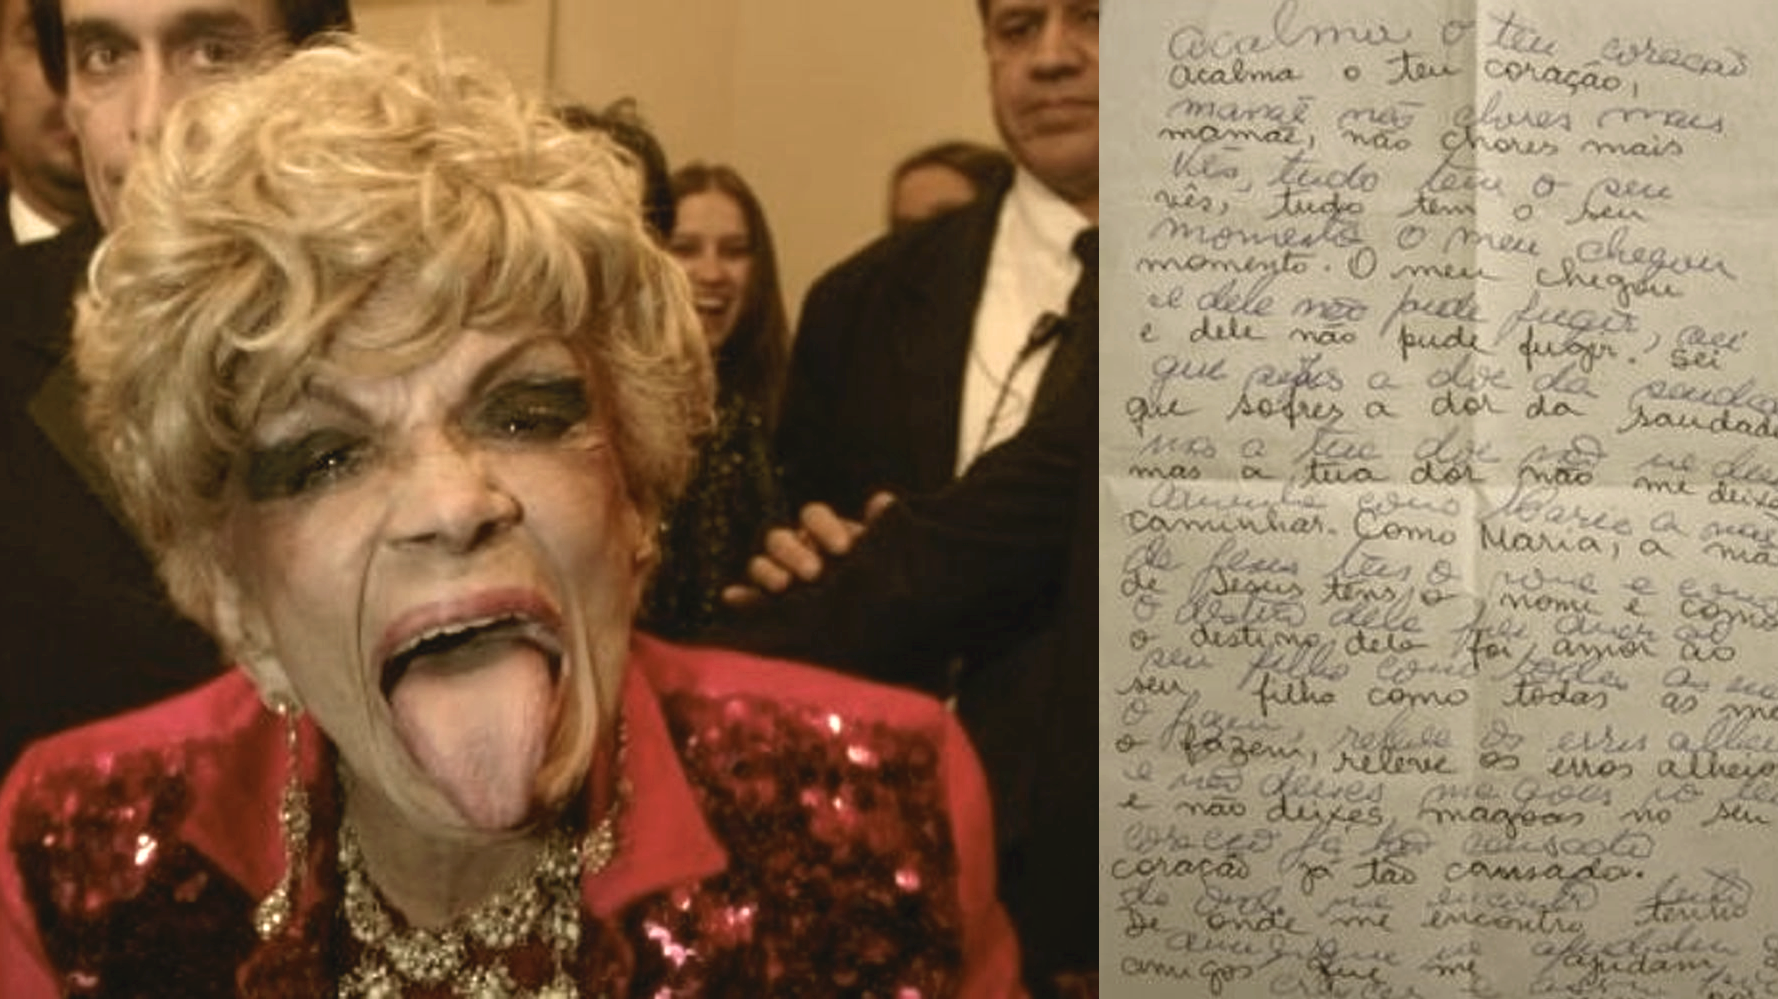 Acalma o teu coração
acalma o teu coração,
mamãe não chores mais
mamãe, não chores mais
Vês, tudo tem o seu
vês, tudo tem o seu
momento o meu chegou
momento. O meu chegou
e dele não pude fugir, sei
e dele não pude fugir. Sei
que a dor da
que sofres a dor da saudade
mas a tua dor não me
mas a tua dor não me deixa
como Maria a
caminhar. Como Maria, a mã
de Jesus tens o nome e como
de Jesus tens o nome e como
o destino dela foi amor ao
o destino dela foi amor ao
seu filho como todas as
seu filho como todas as mã
o fazem, releve os erros
o fazem, releve os erros alheio
e não deixes magoas no
e não deixes magoas no seu
coração já tão cansado
coração ja tão cansado.
de onde me encontro tenho
De onde me encontro tenho
amigos que me ajudam
amigos que me ajudam
crescer e